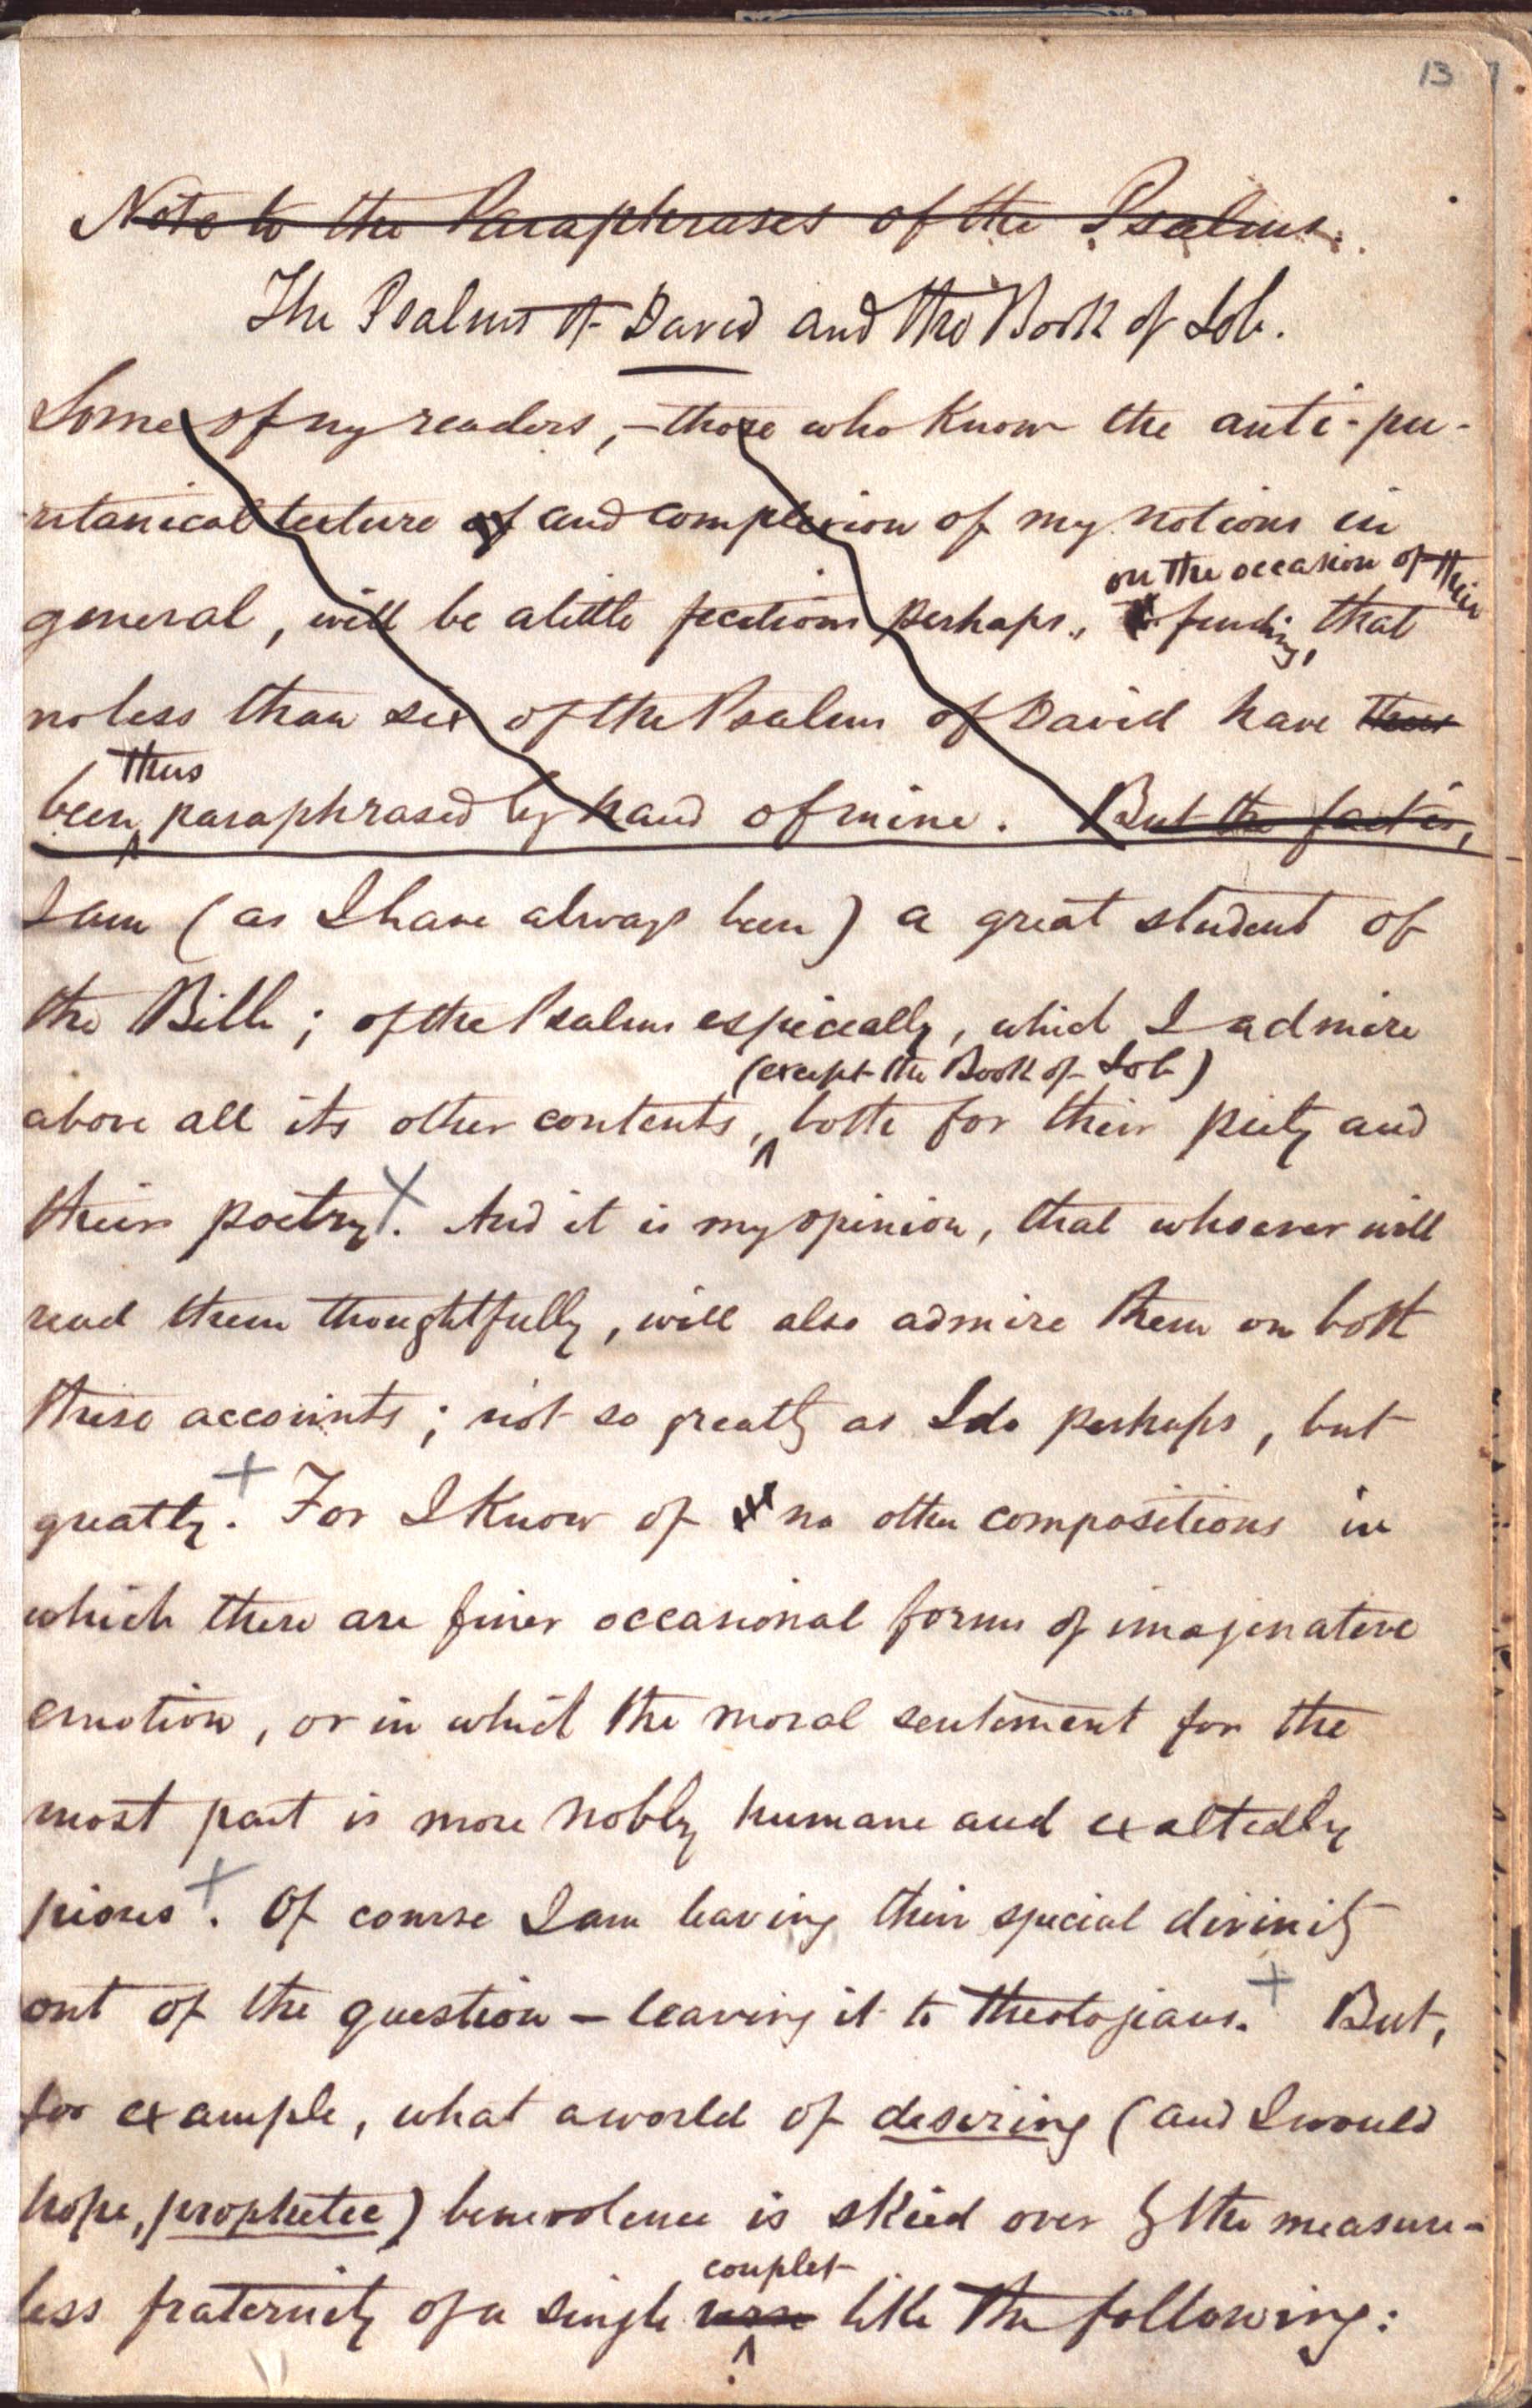 13
Note to the Paraphrases of the Psalms.
The Psalms of David and the Book of Job.
Some of my readers, – those who know the anti-pu-
ritanical texture of and complexion of my notions in
on the occasion of their
general, will be a little perhaps, finding, that
no less than six of the Psalms of David have thus
thus
been paraphrased by hand of mine. But the fact is,
I am (as I have always been) a great student of
the Bible; of the Psalms especially, which I admire
(except the Book of Job)
above all its other contents, both for their piety and
their poetry. And it is my opinion, that whoever will
read them thoughtfully, will also admire them on both
these accounts; not so greatly as I do perhaps, but
greatly. For I know of no other compositions in
which there are finer occasional forms of imaginative
emotion, or in which the moral sentiment for the
most part is more nobly humane and exaltedly
pious. Of course I am leaving their special divinity
out of the question – leaving it to theologians. But,
for example, what a world of desiring (and I would
hope, prophetic) benevolence is skied over by the measure-
couplet
less fraternity of a single verse like the following: